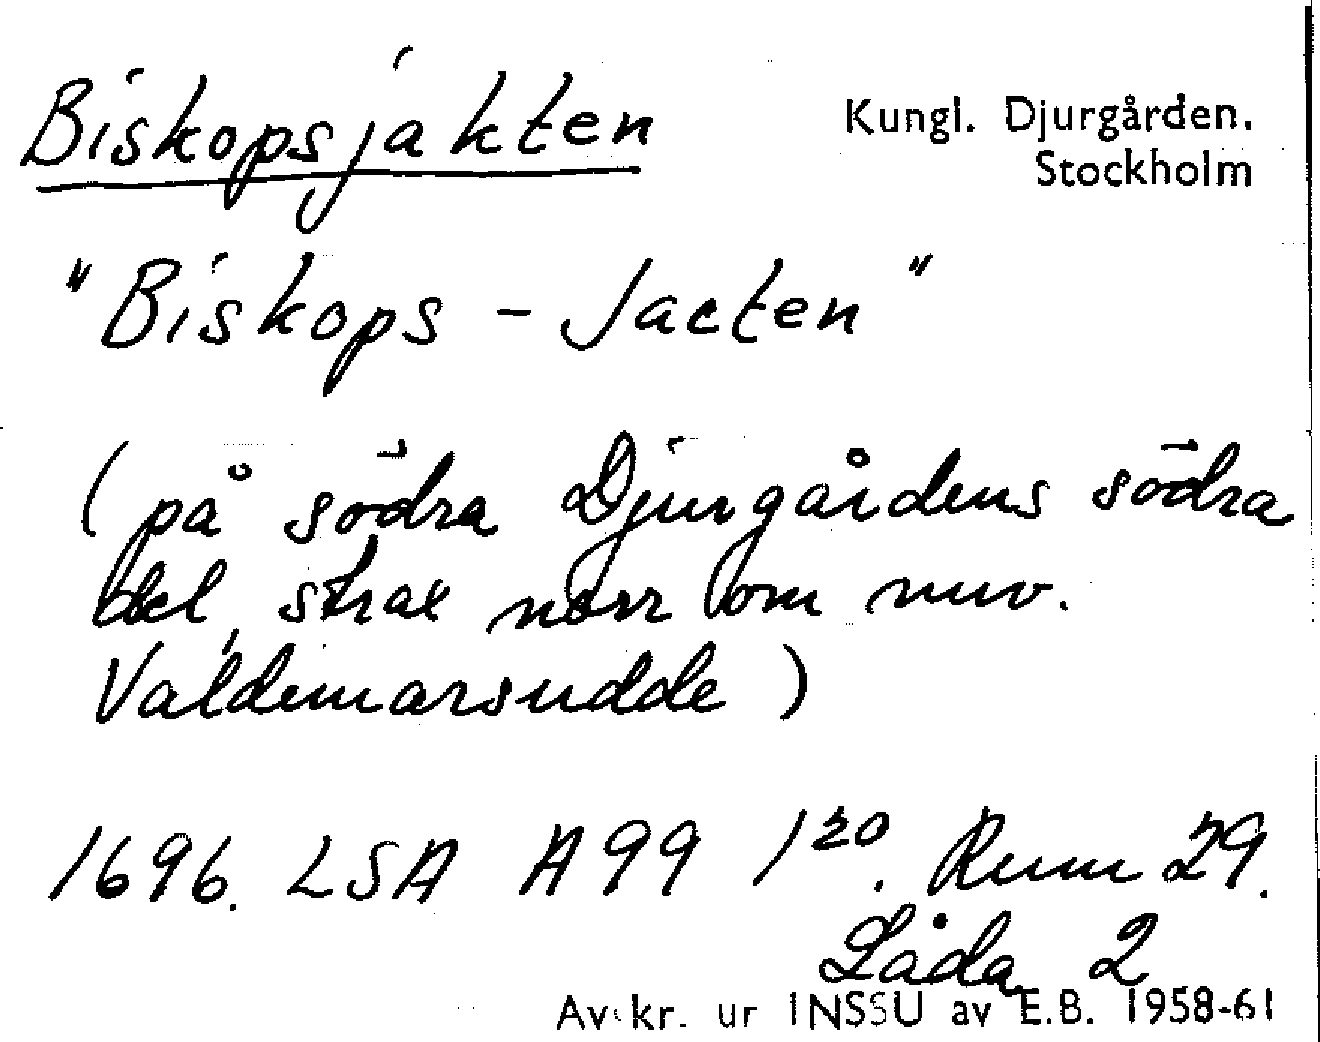 Biskopsjakten
Kungl. Djurgården.
Stockholm
"Biskops - Jacten"
(på södra Djurgårdens södra
del, strax norr om nuv.
Valdemarsudde)
1696. LSA A99 1²⁰. Rum 29.
Låda 2
Avskr. ur INSSU av E.B. 1958-61